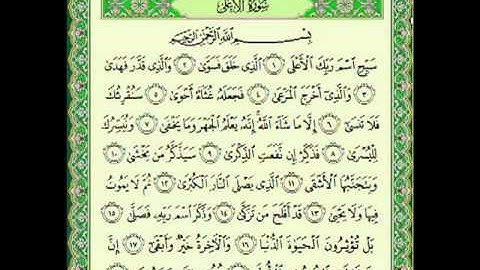 سُورَةُ الأَعْلَىٰ
بِسْمِ اللَّهِ الرَّحْمَٰنِ الرَّحِيمِ
سَبِّحِ اسْمَ رَبِّكَ الْأَعْلَى ۝١ الَّذِي خَلَقَ فَسَوَّىٰ ۝٢ وَالَّذِي قَدَّرَ فَهَدَىٰ
۝٣ وَالَّذِي أَخْرَجَ الْمَرْعَىٰ ۝٤ فَجَعَلَهُ غُثَاءً أَحْوَىٰ ۝٥ سَنُقْرِئُكَ
فَلَا تَنسَىٰ ۝٦ إِلَّا مَا شَاءَ اللَّهُ إِنَّهُ يَعْلَمُ الْجَهْرَ وَمَا يَخْفَىٰ ۝٧ وَنُيَسِّرُكَ
لِلْيُسْرَىٰ ۝٨ فَذَكِّرْ إِن نَّفَعَتِ الذِّكْرَىٰ ۝٩ سَيَذَّكَّرُ مَن يَخْشَىٰ ۝١٠
وَيَتَجَنَّبُهَا الْأَشْقَى ۝١١ الَّذِي يَصْلَى النَّارَ الْكُبْرَىٰ ۝١٢ ثُمَّ لَا يَمُوتُ
فِيهَا وَلَا يَحْيَىٰ ۝١٣ قَدْ أَفْلَحَ مَن تَزَكَّىٰ ۝١٤ وَذَكَرَ اسْمَ رَبِّهِ فَصَلَّىٰ ۝١٥
بَلْ تُؤْثِرُونَ الْحَيَوٰةَ الدُّنْيَا ۝١٦ وَالْآخِرَةُ خَيْرٌ وَأَبْقَىٰ ۝١٧ إِنَّ